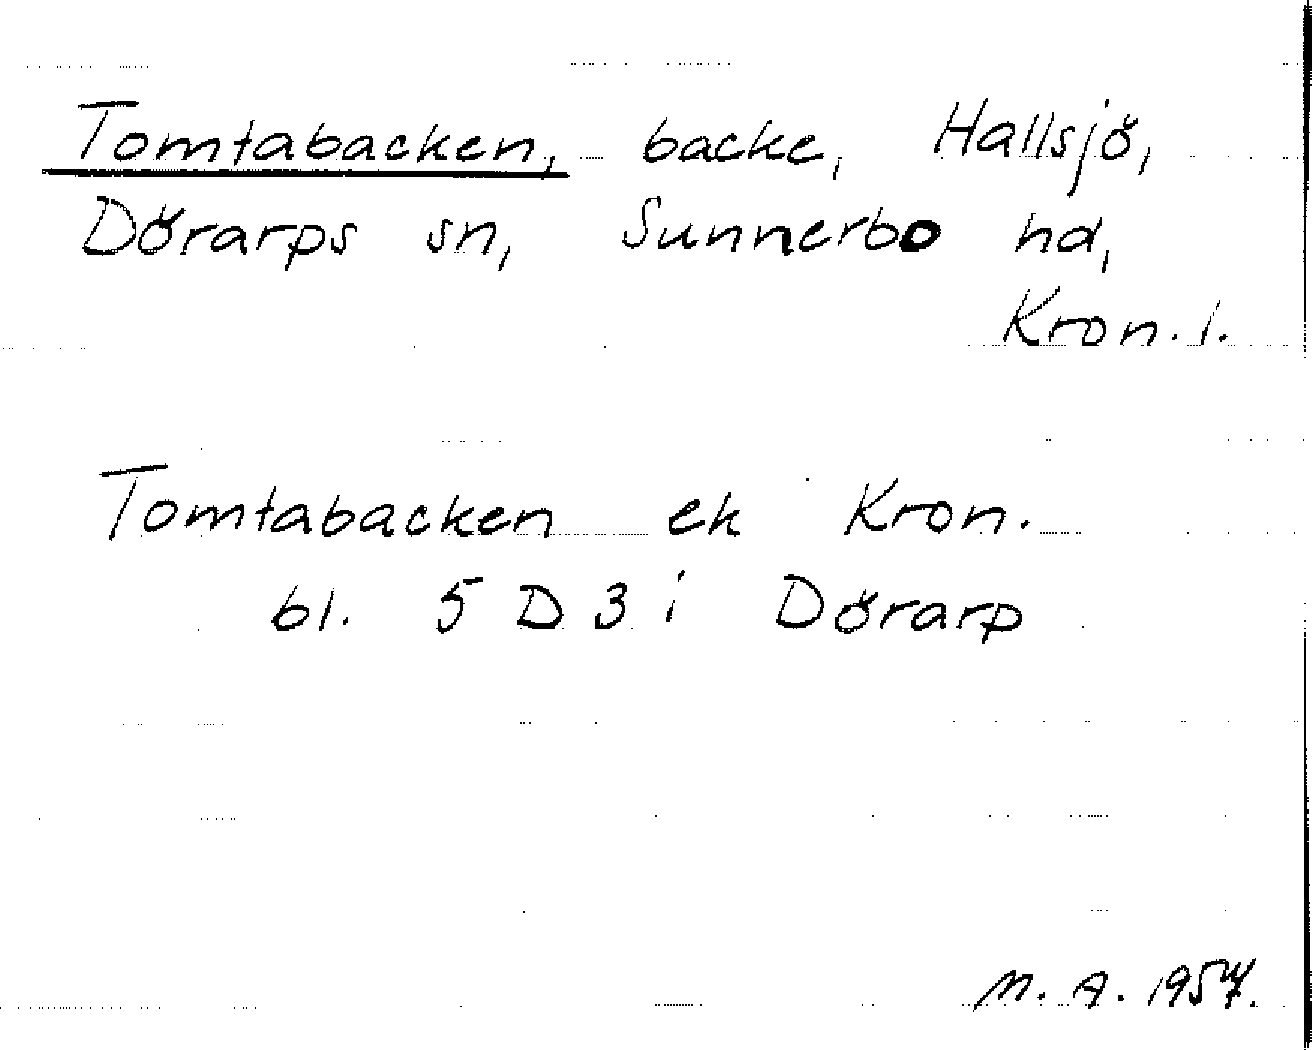 Tomtabacken, backe, Hallsjö,
Dörarps sn, Sunnerbo hd,
Kron. l.
Tomtabacken ek Kron.
bl. 5 D 3 i Dörarp
M. A. 1957.